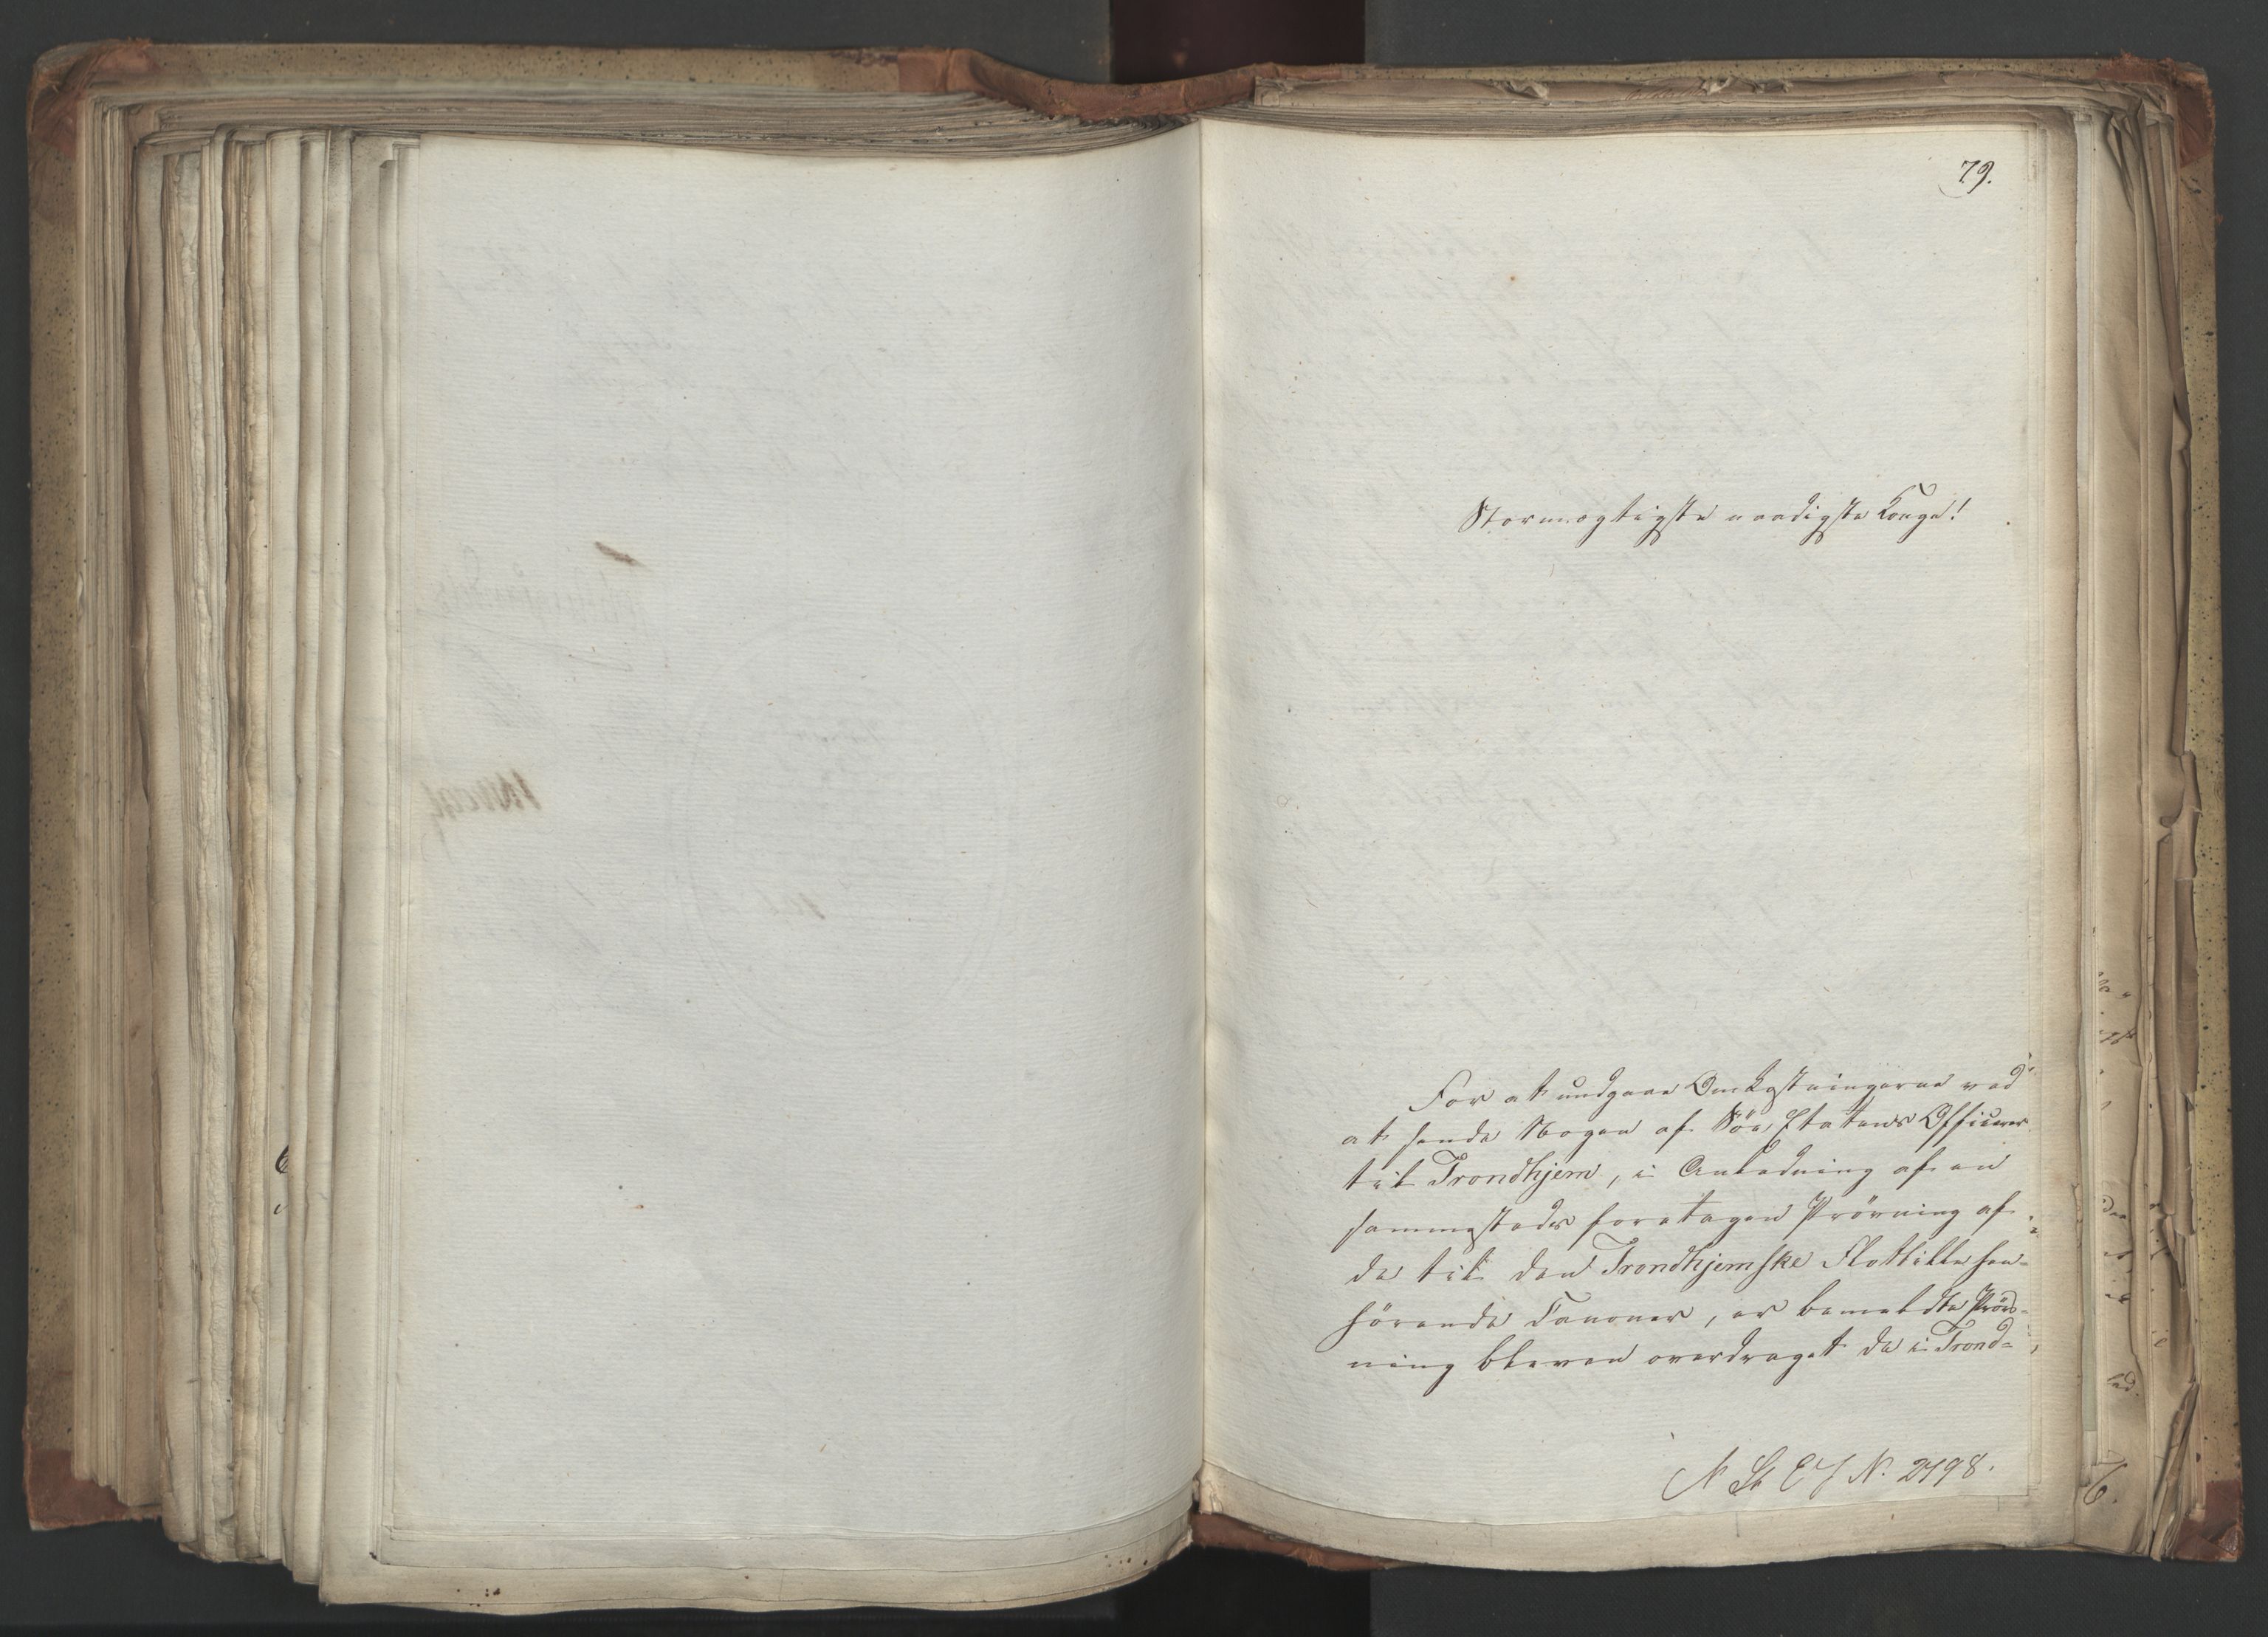 79.
Stormægtigste naadigste Konge!
For at undgaae Omkostningerne ved
at sende Nogen af Söe Etatens Officerer
til Trondhjem, i Anledning af en
sammesteds foretagen Prövning af
de til den Trondhjemske Flottille hen-
hörende Canoner, er bemeldte Pröv-
ning bleven overdraget de i Trond-
N St E J N. 2798.
76.